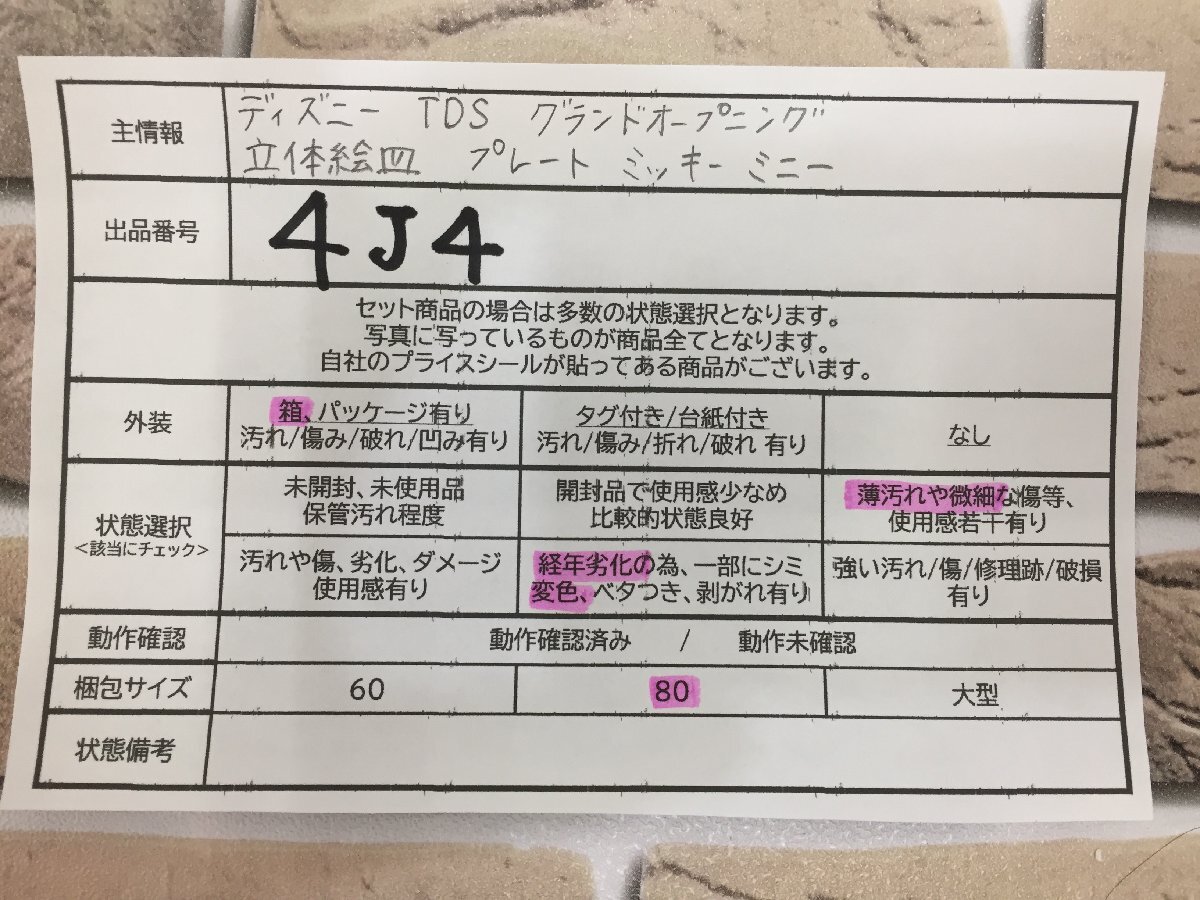 主情報
ディズニー TDS グランドオープニング
立体絵皿 プレート ミッキー ミニー
出品番号
4J4
セット商品の場合は多数の状態選択となります。
写真に写っているものが商品全てとなります。
自社のプライスシールが貼ってある商品がございます。
外装
箱、パッケージ有り
汚れ/傷み/破れ/凹み有り
タグ付き/台紙付き
汚れ/傷み/折れ/破れ 有り
なし
状態選択
<該当にチェック>
未開封、未使用品
保管汚れ程度
開封品で使用感少なめ
比較的状態良好
薄汚れや微細な傷等、
使用感若干有り
汚れや傷、劣化、ダメージ
使用感有り
経年劣化の為、一部にシミ
変色、ベタつき、剥がれ有り
強い汚れ/傷/修理跡/破損
有り
動作確認
動作確認済み / 動作未確認
梱包サイズ
60
80
大型
状態備考